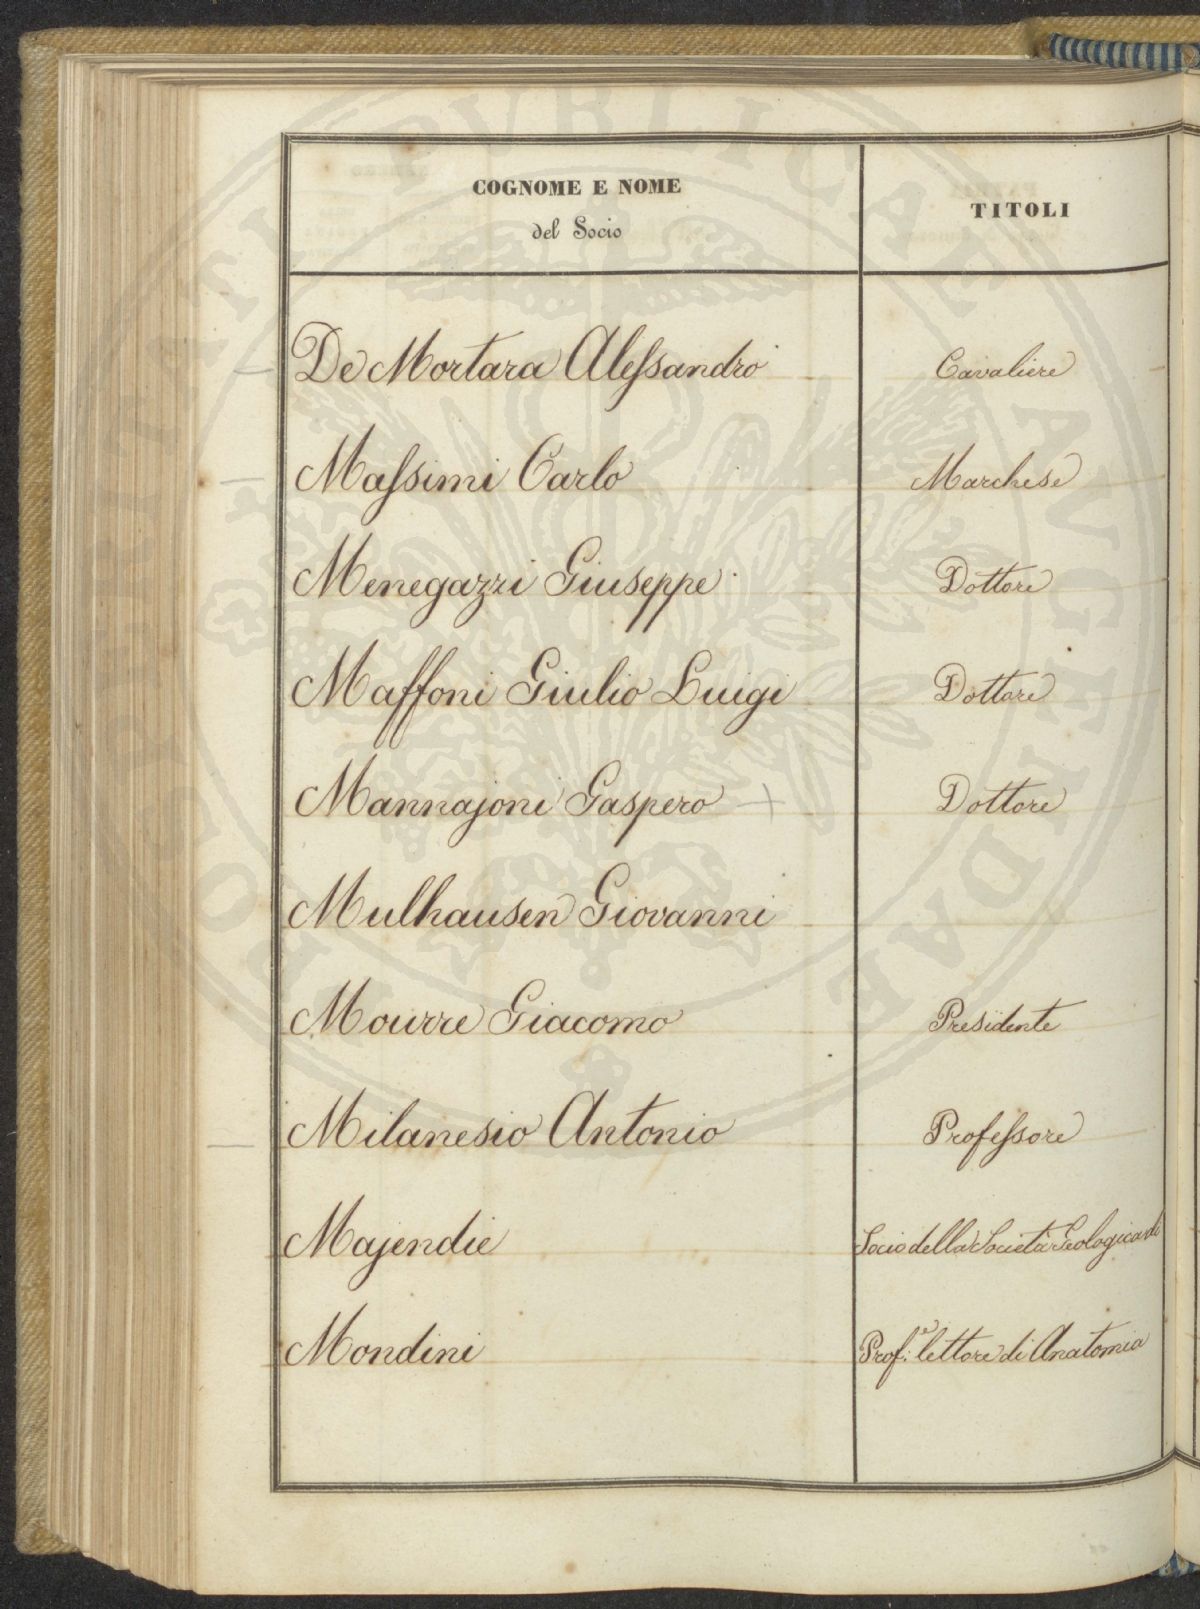 COGNOME E NOME
del Socio
TITOLI
De Mortara Alessandro Cavaliere
Massimi Carlo Marchese
Menegazzi Giuseppe Dottore
Maffoni Giulio Luigi Dottore
Mannajoni Gaspero Dottore
Mulhausen Giovanni
Mourre Giacomo Presidente
Milanesio Antonio Professore
Majendie Socio della Società Geologica di
Mondini Prof.e lettore di Anatomia
PROSPERITATI PVBLICAE AVGENDAE